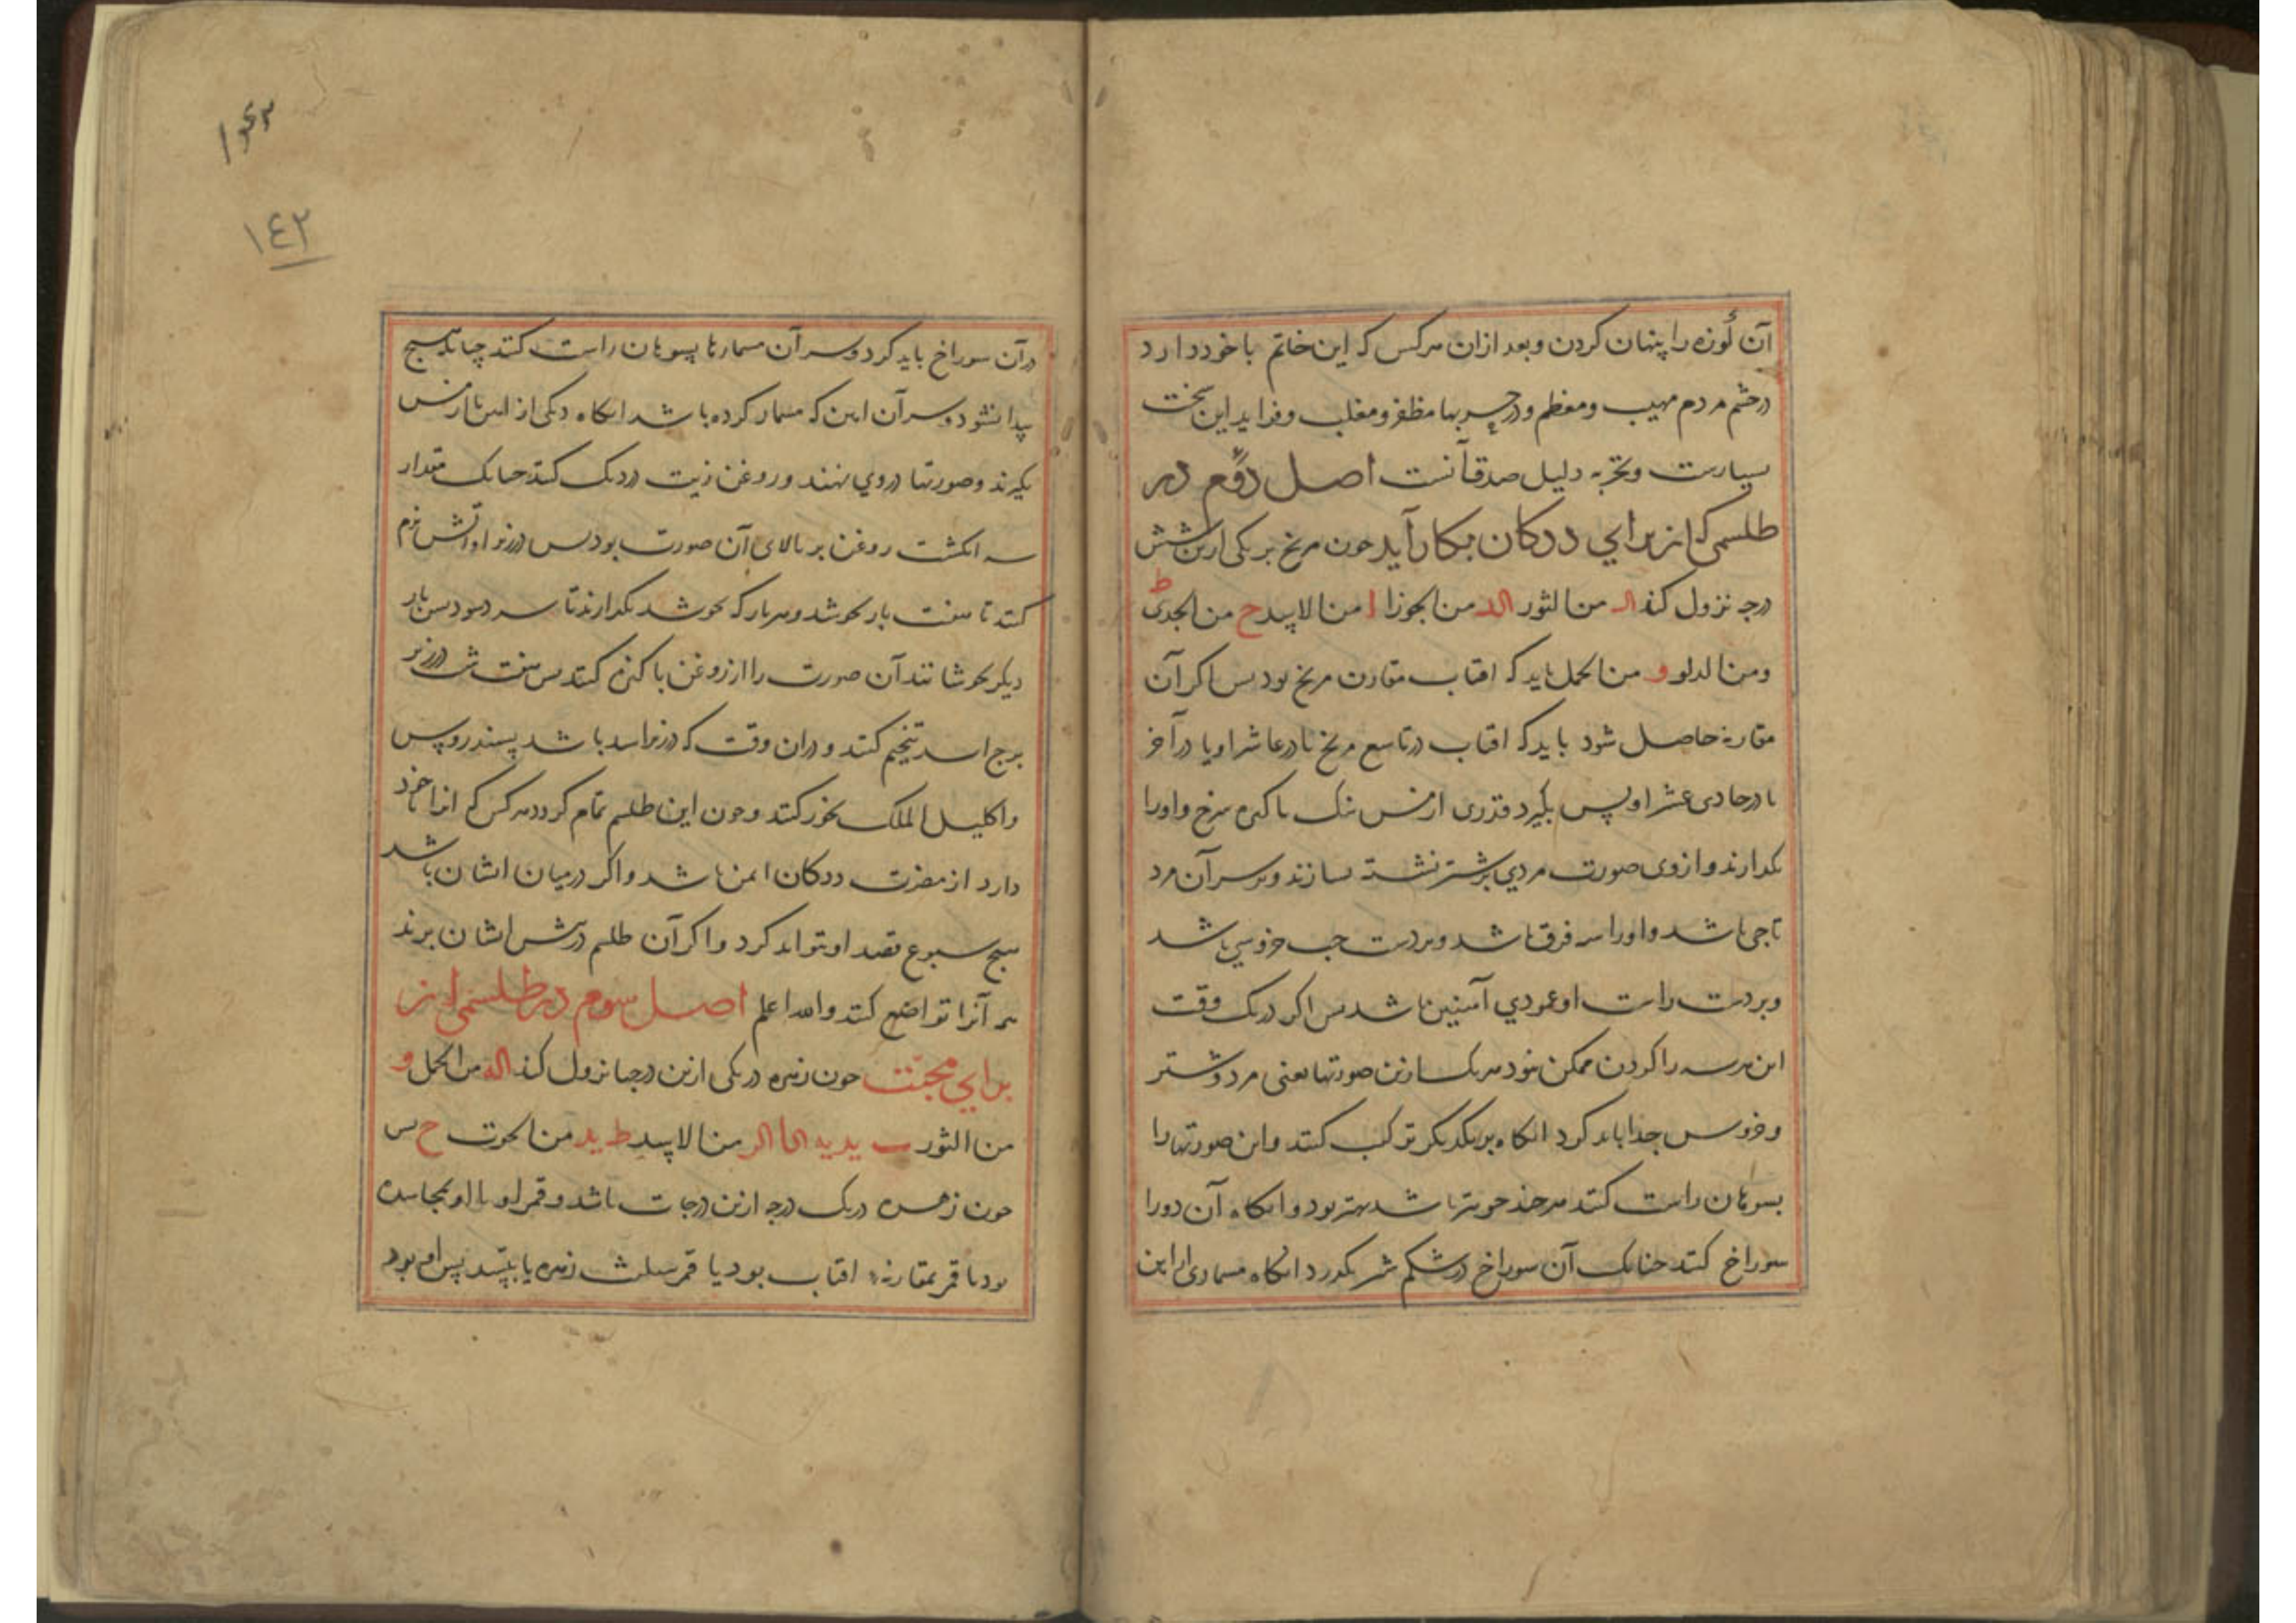 آن لوزه را پنهان کردن و بعد ازان هرکس که این خاتم با خود دارد
در چشم مردم مهیب و معظم و در حربها مظفر و مغلب و فواید این سخت
بسیارست و تجربه دلیل صدق آنست اصل دوم در
طلسمی که از برای ددکان بکار آید چون مریخ بر یکی ازین شش
درجه نزول کند الـ من الثور الد من الجوزا ا من الاسد ح من الجدی ط
و من الدلو و من الحمل باید که افتاب مقارن مریخ بود پس اکر آن
مقارنه حاصل شود باید که افتاب در تاسع مریخ یا در عاشر او یا در آخر
یا در حادی عشر او پس بگیرد قدری از مس نیک پاکیزه سرخ و او را
بکدازند و از وی صورت مردی بر شتر نشسته بسازند و بر سر آن مرد
تاجی باشد و او را سه فرق باشد و بر دست چپ خروسی باشد
و بر دست راست او عمودی آهنین باشد پس اکر در یک وقت
این هر سه را کردن ممکن نبود هر یک ازین صورتها یعنی مرد و شتر
و خروس جدا باید کرد انکاه بر یکدیکر ترکیب کنند و این صورتها را
بسوهان راست کنند هر چند خوبتر باشد بهتر بود و انکاه آن دو را
سوراخ کنند چنانک آن سوراخ در شکم شتر بکذرد انکاه مسماری از این
در آن سوراخ باید کرد و سر آن مسمارها بسوهان راست کنند چنانک هیچ
پیدا نشود و سر آن اهن که مسمار کرده باشد انکاه دیکی از مس یا ارزیز
بکیرند و صورتها در وی نهند و روغن زیت در دیک کنند چنانک مقدار
سه انکشت روغن بر بالای آن صورت بود پس در زیر او آتش نرم
کنند تا هفت بار بجوشد و هر بار که بجوشد بکذارند تا سرد شود پس بار
دیکر بجوشانند آن صورت را از روغن پاکیزه کنند پس هفت شب در زیر
برج اسد تنجیم کنند و در ان وقت که در زیر اسد باشد بسندروس
و اکلیل الملک بخور کنند و چون این طلسم تمام کردد هرکس که انرا با خود
دارد از مضرت ددکان ایمن باشد و اکر در میان ایشان باشد
هیچ سبوع قصد او نتواند کرد و اکر آن طلسم در پیش ایشان برند
هر آنرا تواضع کنند والله اعلم اصل سوم در طلسمی از
برای محبت چون زهره در یکی ازین درجها نزول کند الد من الحمل و
من الثور ب ید یه الحا الر من الاسد ط ید من الحوت ح پس
چون زهره در یک درجه ازین درجات باشد و قمر او با او بمجاسده
بود یا قمر بمقارنه افتاب بود یا قمر بتثلیث زهره یا بتسدیس او بود
١٤٢